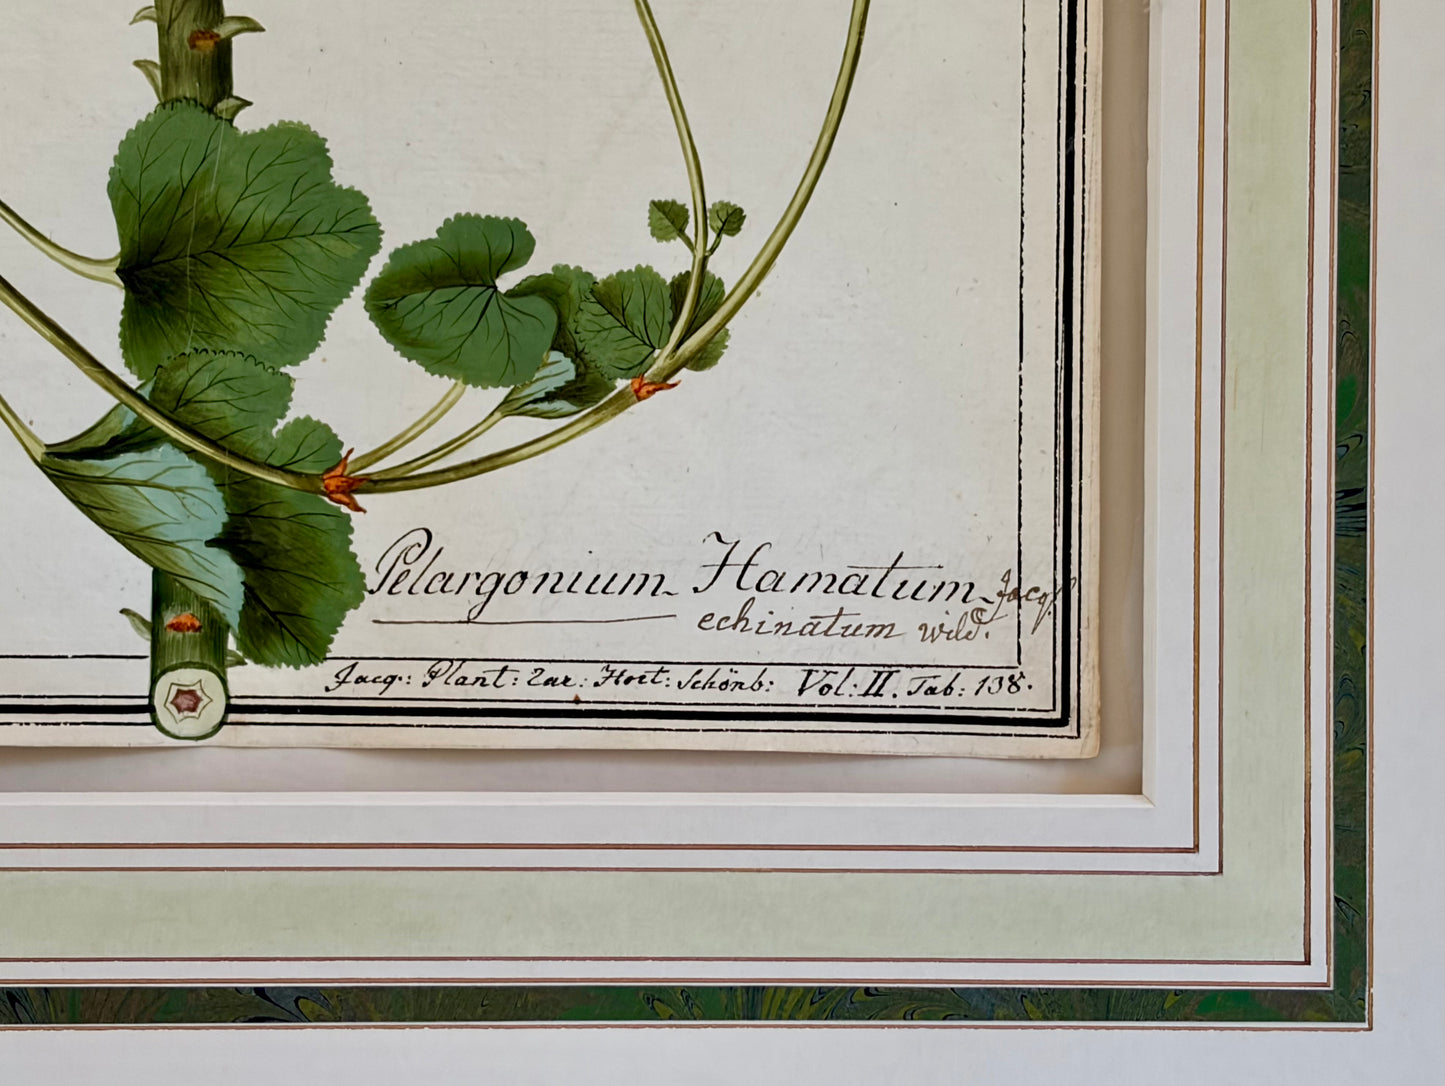 Pelargonium Hamatum Jacq.
echinatum wild.
Jacq.: Plant: rar: Hort: Schönb: Vol: II. Tab: 138.